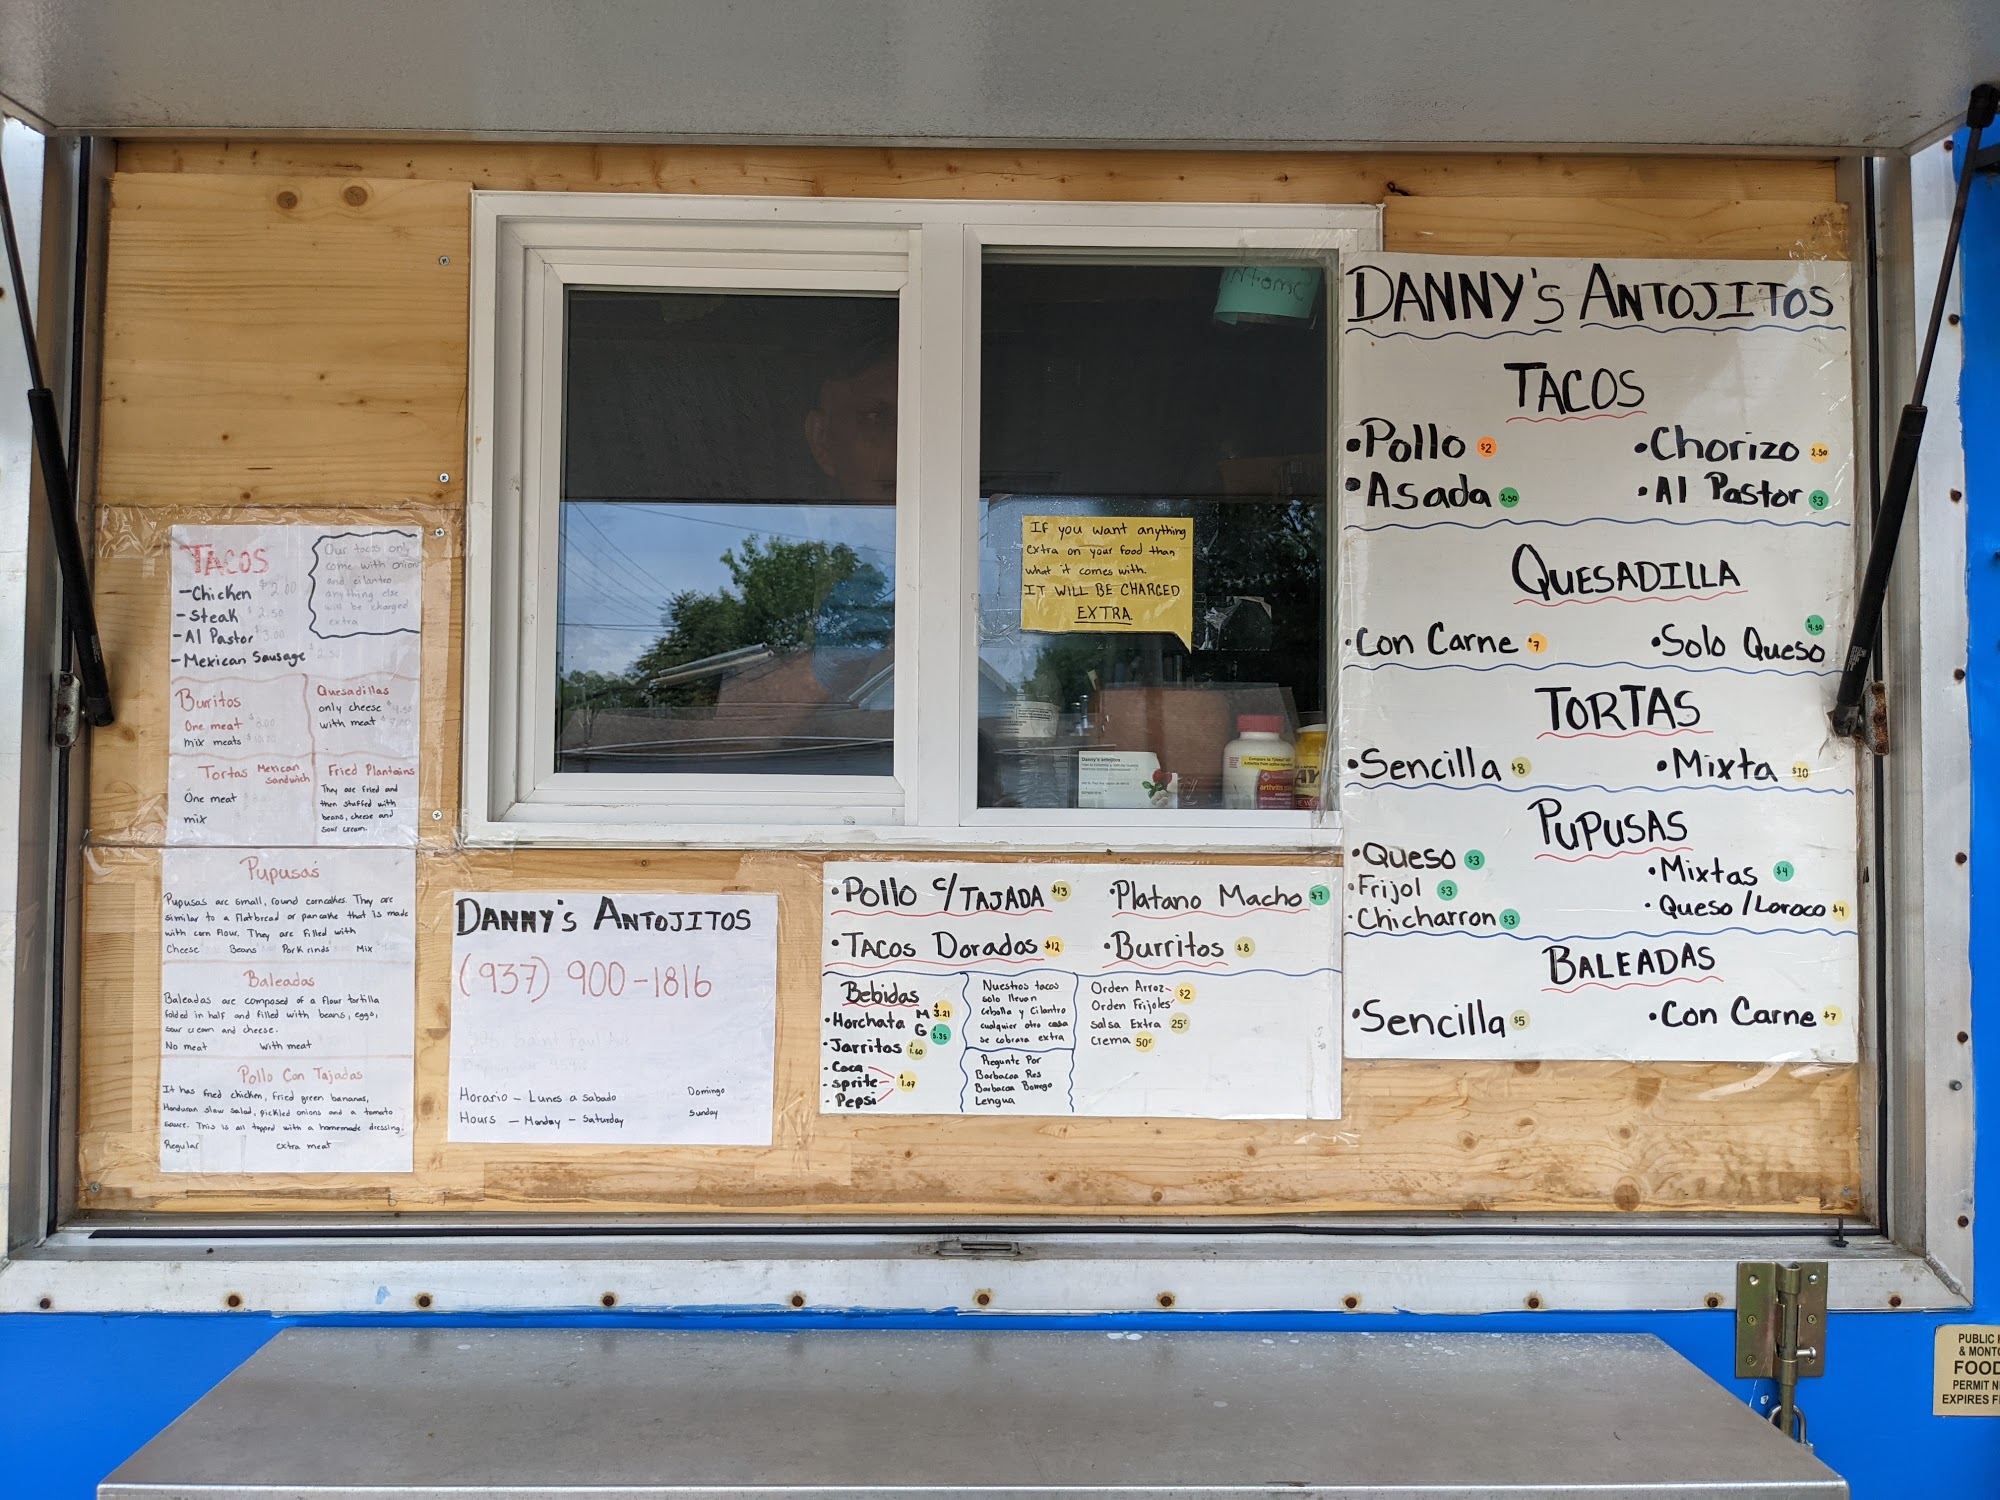 TACOS
- Chicken $2.00
- Steak $2.50
- Al Pastor $3.00
- Mexican Sausage $2.50
Our tacos only
come with onion
and cilantro
anything else
will be charged
extra
Burritos
One meat $8.00
mix meats $10.00
Quesadillas
only cheese $4.50
with meat $7.00
Tortas Mexican sandwich
One meat
mix
Fried Plantains
They are fried and
then stuffed with
beans, cheese and
sour cream.
Pupusas
Pupusas are small, round corncakes. They are
similar to a flatbread or pancake that is made
with corn flour. They are filled with
Cheese Beans Pork rinds Mix
Baleadas
Baleadas are composed of a flour tortilla
folded in half and filled with beans, eggs,
sour cream and cheese.
No meat With meat
Pollo Con Tajadas
It has fried chicken, fried green bananas,
Honduran slaw salad, pickled onions and a tomato
sauce. This is all topped with a homemade dressing.
Regular extra meat
DANNY'S ANTOJITOS
(937) 900-1816
Horario - Lunes a sabado Domingo
Hours - Monday - Saturday Sunday
If you want anything
extra on your food than
what it comes with.
IT WILL BE CHARGED
EXTRA.
Danny's antojitos
arthritis
• Pollo c/TAJADA $13
• Platano Macho $7
• TACOS Dorados $12
• Burritos $8
Bebidas
• Horchata M $3.21
G $5.35
• Jarritos $1.60
• Coca
• sprite $1.07
• Pepsi
Nuestros tacos
solo llevan
cebolla y Cilantro
cualquier otra cosa
se cobrara extra
Pregunte Por
Barbacoa Res
Barbacoa Borrego
Lengua
Orden Arroz $2
Orden Frijoles
Salsa Extra 25¢
Crema 50¢
DANNY'S ANTOJITOS
TACOS
• Pollo $2
• Chorizo 2.50
• Asada 2.50
• Al Pastor $3
QUESADILLA
• Con Carne $7
• Solo Queso $4.50
TORTAS
• Sencilla $8
• Mixta $10
PUPUSAS
• Queso $3
• Mixtas $4
• Frijol $3
• Queso/Loroco $4
• Chicharron $3
BALEADAS
• Sencilla $5
• Con Carne $7
PUBLIC
& MONTG
FOOD
PERMIT N
EXPIRES F